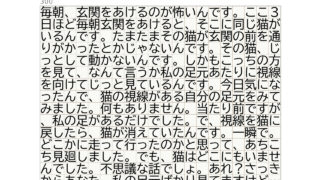 300
毎朝、玄関をあけるのが怖いんです。ここ３
日ほど毎朝玄関をあけると、そこに同じ猫が
いるんです。たまたまその猫が玄関の前を通
りがかったとかじゃないんです。その猫、じ
っとして動かないんです。しかもこっちの方
を見て、なんて言うか私の足元あたりに視線
を向けてじっと見ているんです。今日気にな
ったんで、猫の視線がある自分の足元をみて
みました。何もありません。当たり前ですが
、私の足があるだけでした。で、視線を猫に
戻したら、猫が消えていたんです。一瞬で。
どこかに走って行ったのかと思って、あちこ
ち見廻しました。でも、猫はどこにもいませ
んでした。不思議な話でしょ。あれ？さっき
からあなた、私の足元ばかり見てますけど、